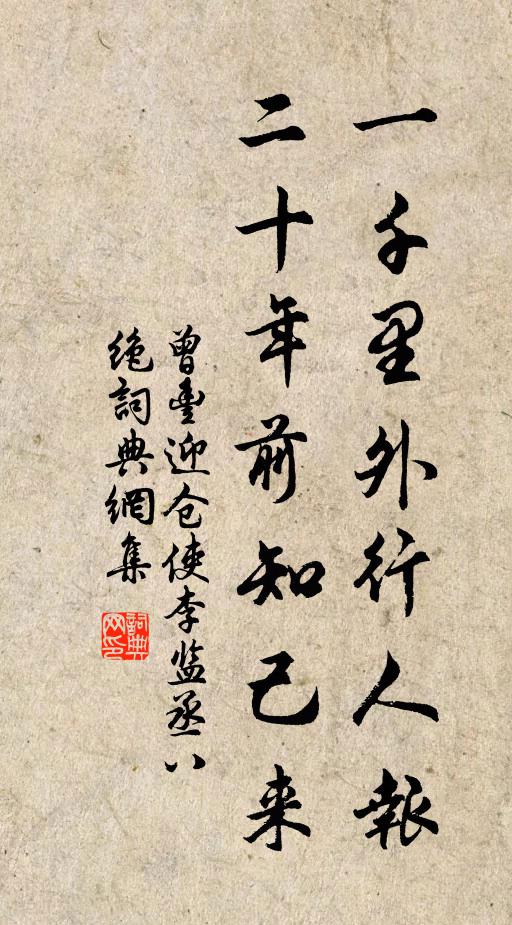 一千里外行人報
二十年前知己来
曾豊迎仓使李监丞八
绝詞典網集
詞典网印